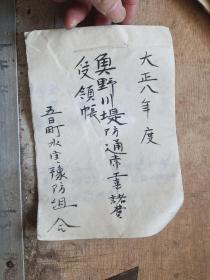 大正八年度
奥野川堤防通常工事諸費
受領帳
五日町水害予防組合